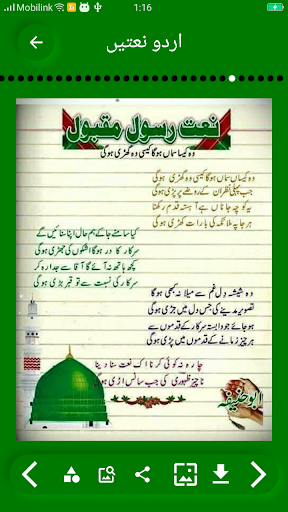 Mobilink
1:16
اردو نعتیں
نعت رسول مقبول
وہ کیسا سماں ہوگا کیسی وہ گھڑی ہوگی
وہ کیسا سماں ہوگا کیسی وہ گھڑی ہوگی
جب پہلی نظر ان کے روضے پر پڑی ہوگی
یہ کوچہ جاناں ہے آہستہ قدم رکھنا
ہر جا پہ ملائکہ کی بارات کھڑی ہوگی
کیا سامنے جا کے ہم حال اپنا سنائیں گے
سرکار کا در ہوگا اشکوں کی جھڑی ہوگی
کچھ ہاتھ نہ آئے گا آقا سے جدا رہ کر
سرکار کی نسبت سے توقیر بڑی ہوگی
وہ شیشہ دل غم سے میلا نہ کبھی ہوگا
تصویر مدینے کی جس دل میں جڑی ہوگی
ہو جائے جو وابستہ سرکار کے قدموں سے
ہر چیز زمانے کی قدموں میں پڑی ہوگی
چارہ نہ کوئی کرنا اک نعت سنا دینا
ناچیز ظہوری کی جب سانس اڑی ہوگی
ابو حنیفہ